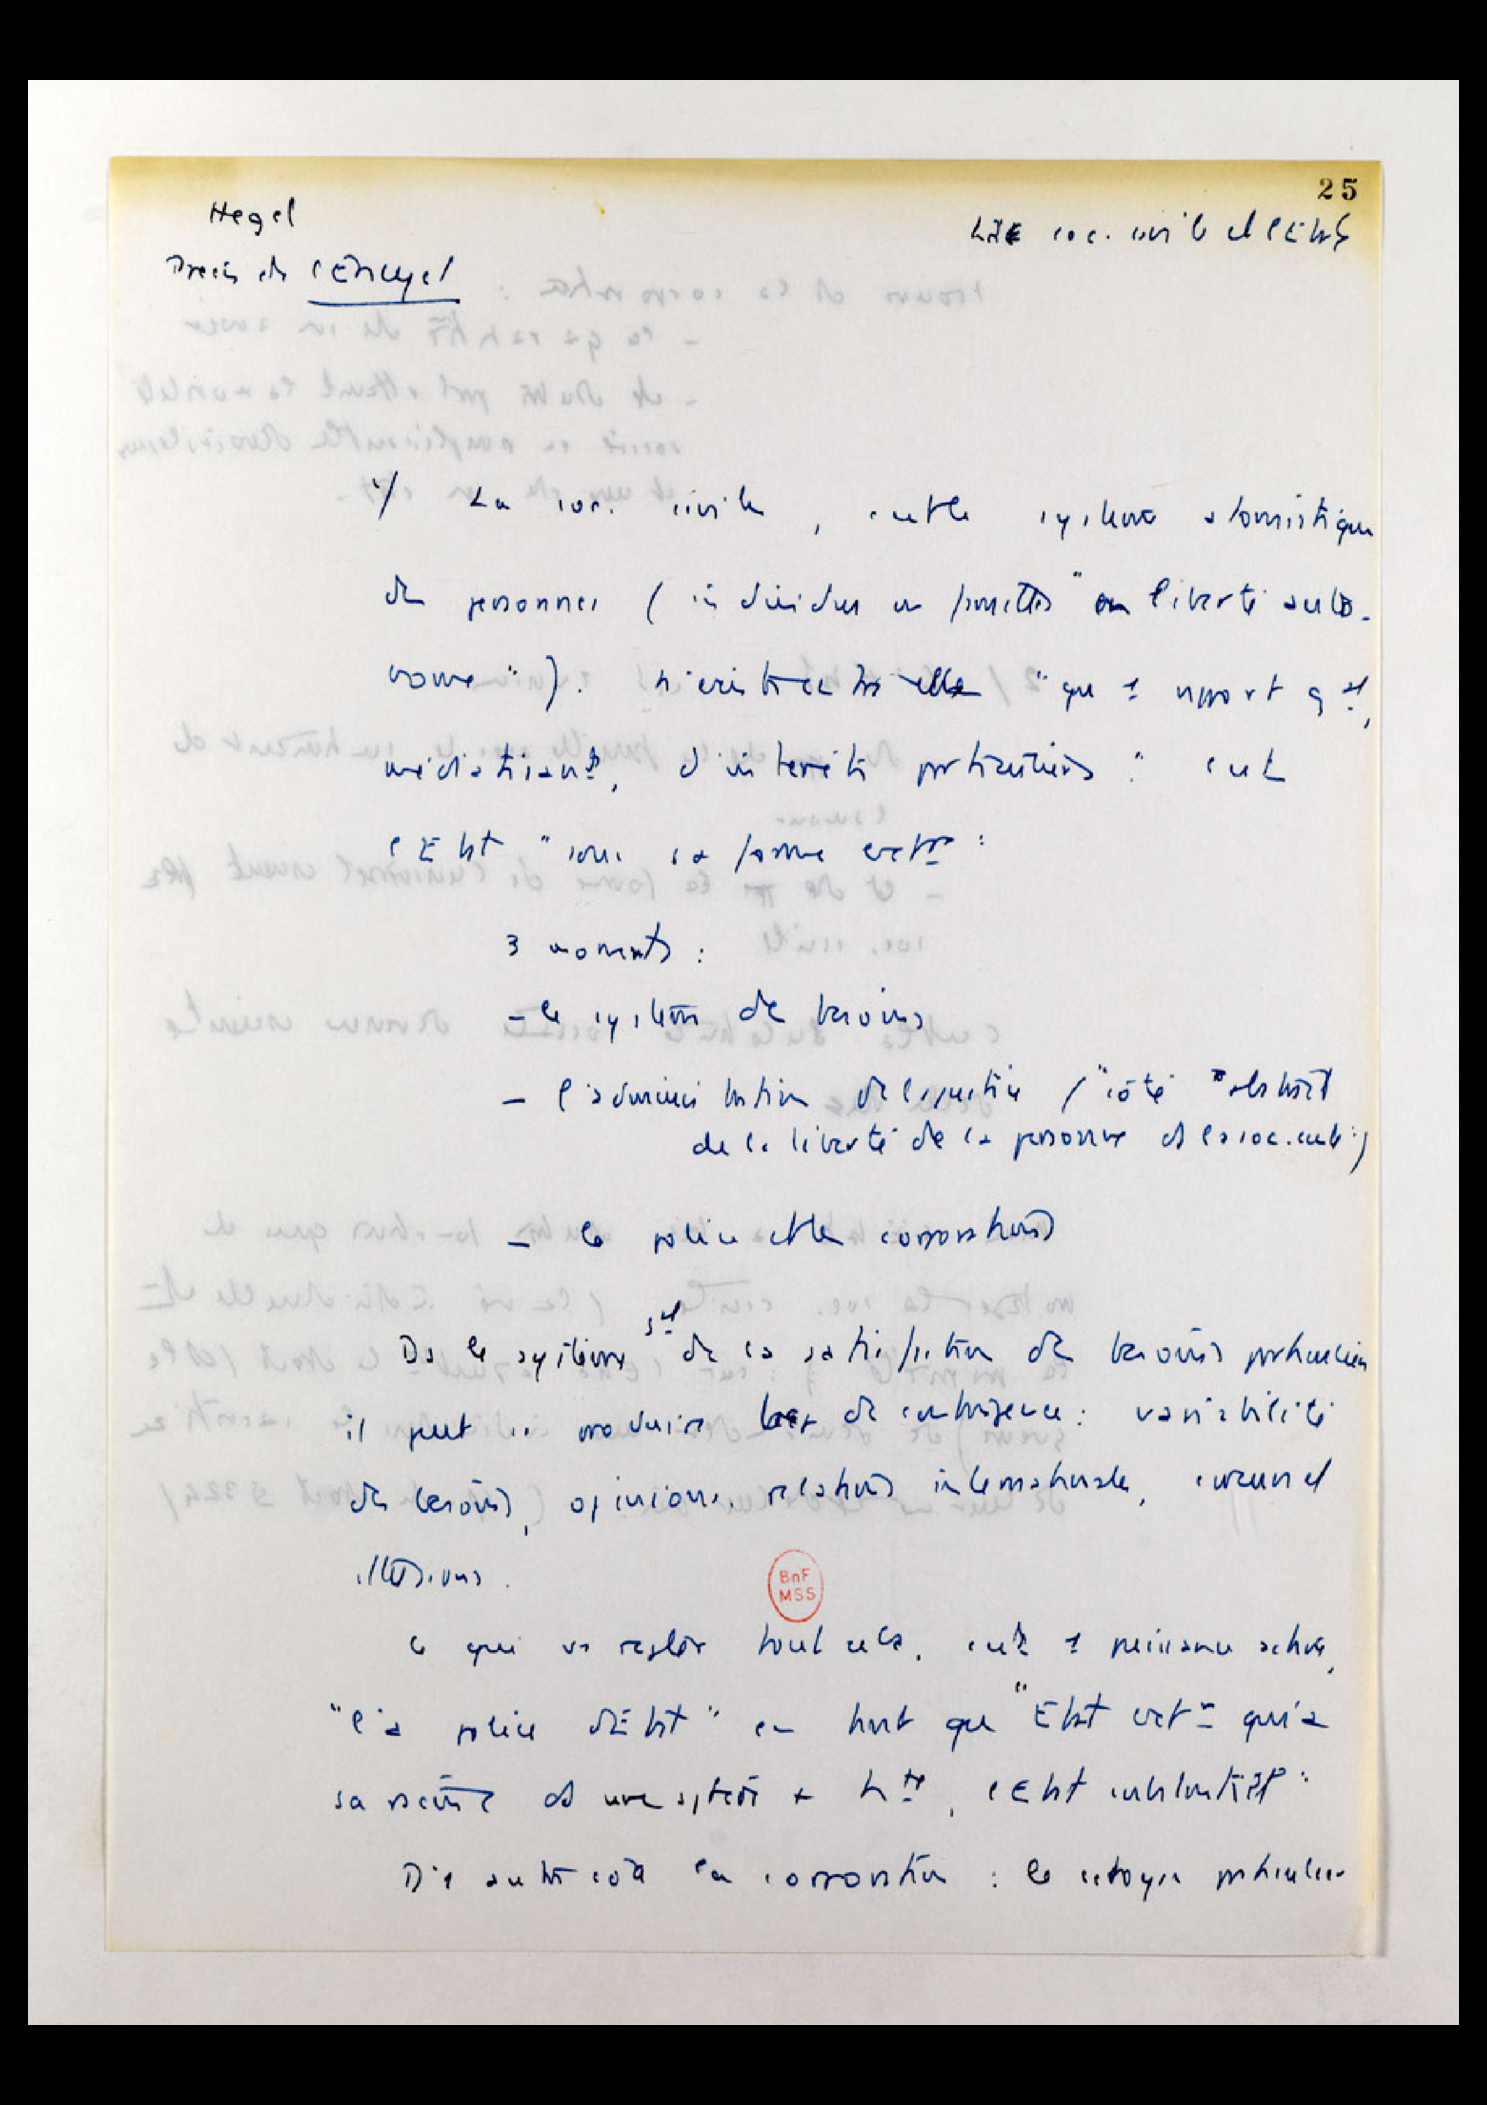 25
Hegel
La soc. civile et l'Etat
Précis de l'Encycl
1/ La soc. civile, c'est le système atomistique
de personnes (individus ou familles "en liberté auto-
nome"). N'existe entre elles "que 1 rapport gal,
médiatisant, d'intérêts particuliers" : c'est
l'Etat "sous sa forme extre"
3 moments :
- le système des besoins
- l'administration de la justice ("côté abstrait
de la liberté de la personne et la soc. civile")
- la police et les corporations
Ds le système de la satisfaction des besoins particuliers
il peut se produire des contingences : variabilité
des besoins, opinions, relations internationales, erreurs et
illusions.
Ce qui va régler tout cela, c'est 1 puissance active,
"la police d'Etat" en tant que "Etat extr qui a
sa racine ds une sphère + hte, l'Etat substantiel"
D'1 autre côté la corporation : le citoyen particulier
BnF
MSS